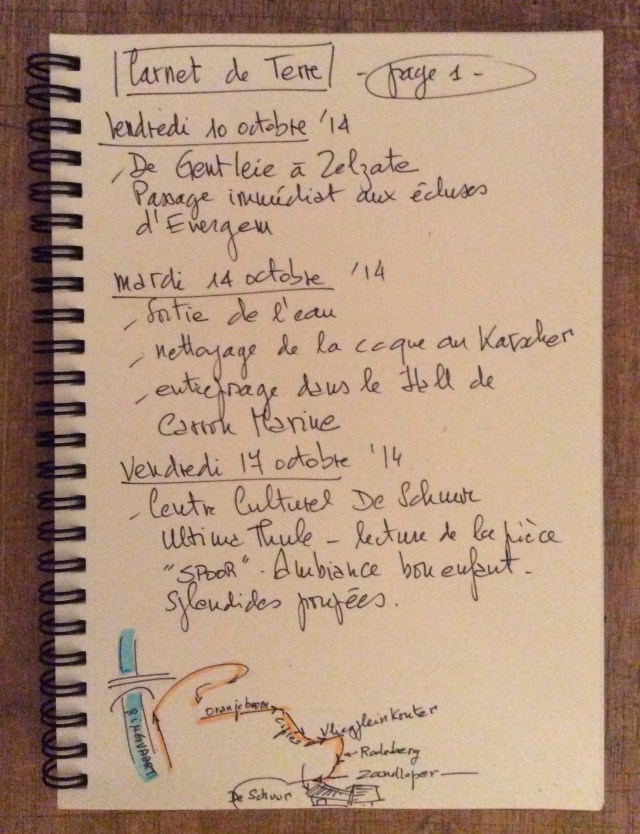 Carnet de Terre - page 1 -
Vendredi 10 octobre '14
De Gentleie à Zelzate
Passage immédiat aux écluses
d'Evergem
mardi 14 octobre '14
Sortie de l'eau
nettoyage de la coque au Karscher
entreposage dans le Hall de
Carron Marine
Vendredi 17 octobre '14
Centre Culturel De Schuur
Ultima Thule - lecture de la pièce
"SPOOR". Ambiance bon enfant.
Splendides poupées.
RINGVAART
Oranjeboom
Vliegpleinkouter
Rodeberg
Zandloper
De Schuur